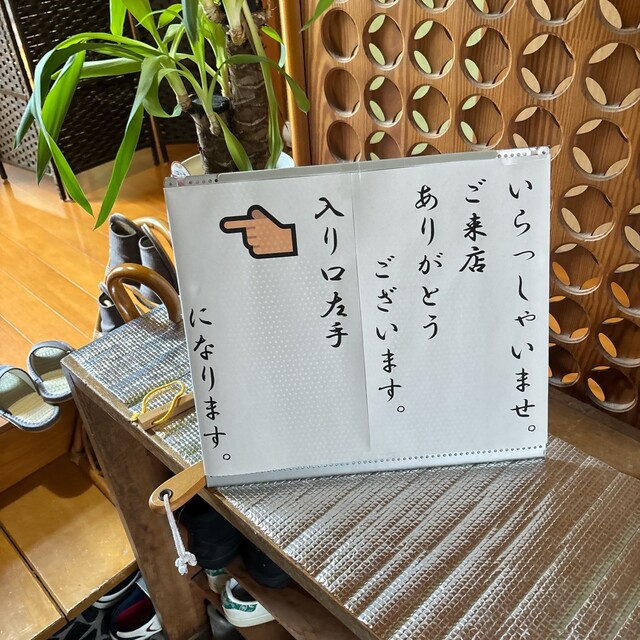 いらっしゃいませ。
ご来店
ありがとう
ございます。
入り口左手
になります。